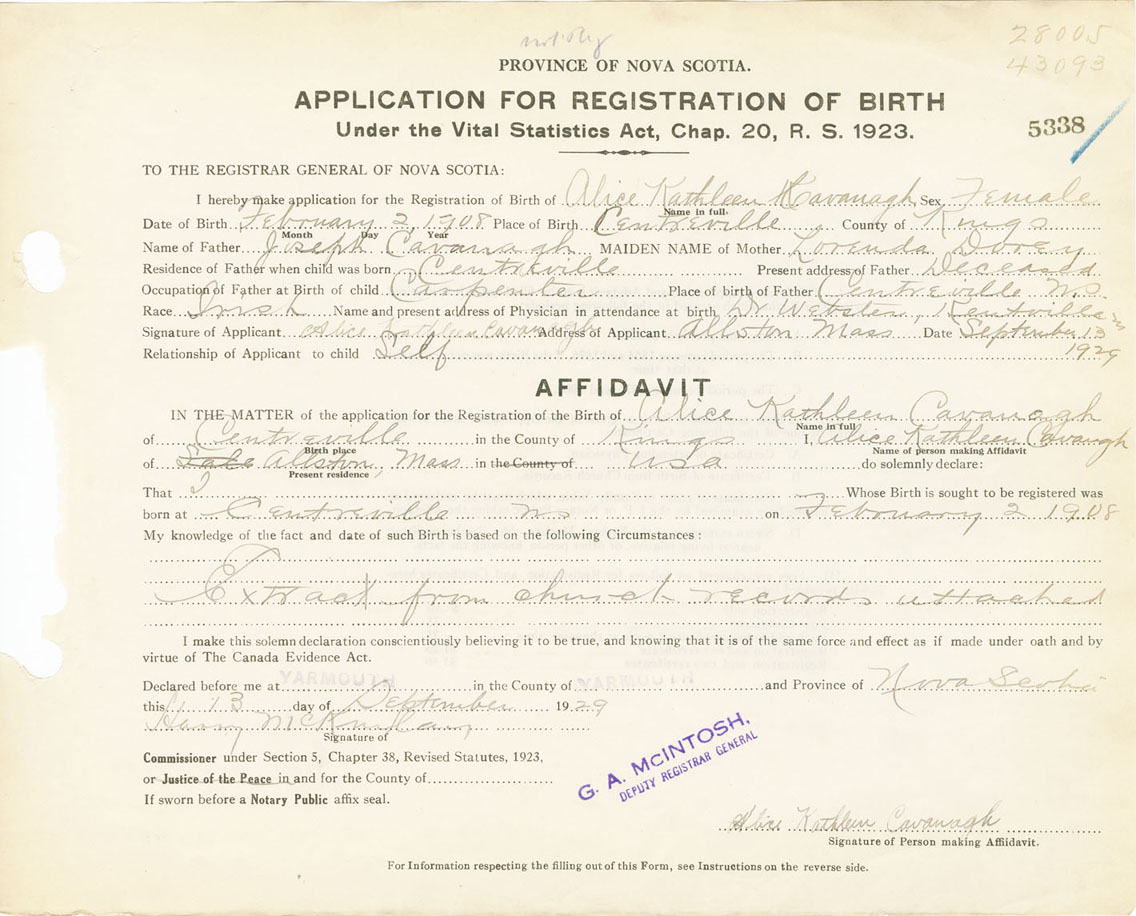 28005
PROVINCE OF NOVA SCOTIA.
43093
APPLICATION FOR REGISTRATION OF BIRTH
Under the Vital Statistics Act, Chap. 20, R. S. 1923.
5338
TO THE REGISTRAR GENERAL OF NOVA SCOTIA:
I hereby make application for the Registration of Birth of Alice Kathleen Cavanagh Sex Female
Name in full
Date of Birth Febouary 2, 1908 Place of Birth Centreville County of Kings
Month Day Year
Name of Father Joseph Cavanagh MAIDEN NAME of Mother Lorenda Dorey
Residence of Father when child was born Centreville Present address of Father Deceased
Occupation of Father at Birth of child Carpenter Place of birth of Father Centreville N.S.
Race Irish Name and present address of Physician in attendance at birth Dr Webster, Kentville NS
Signature of Applicant Alice Kathleen Cavanagh Address of Applicant Allston Mass Date September 13
Relationship of Applicant to child Self 1929
AFFIDAVIT
IN THE MATTER of the application for the Registration of the Birth of Alice Kathleen Cavanagh
Name in full
of Centreville in the County of Kings I, Alice Kathleen Cavanagh
Birth place Name of person making Affidavit
of Allston, Mass in the County of USA do solemnly declare:
Present residence
That I Whose Birth is sought to be registered was
born at Centreville NS on Febouary 2 1908
My knowledge of the fact and date of such Birth is based on the following Circumstances:
Extract from church records attached
I make this solemn declaration conscientiously believing it to be true, and knowing that it is of the same force and effect as if made under oath and by
virtue of The Canada Evidence Act.
Declared before me at in the County of and Province of Nova Scotia
YARMOUTH YARMOUTH
this 13 day of September 1929
Harry
Signature of
Commissioner under Section 5, Chapter 38, Revised Statutes, 1923,
or Justice of the Peace in and for the County of
If sworn before a Notary Public affix seal.
G. A. McINTOSH,
DEPUTY REGISTRAR GENERAL
Alice Kathleen Cavanagh
Signature of Person making Affidavit.
For Information respecting the filling out of this Form, see Instructions on the reverse side.